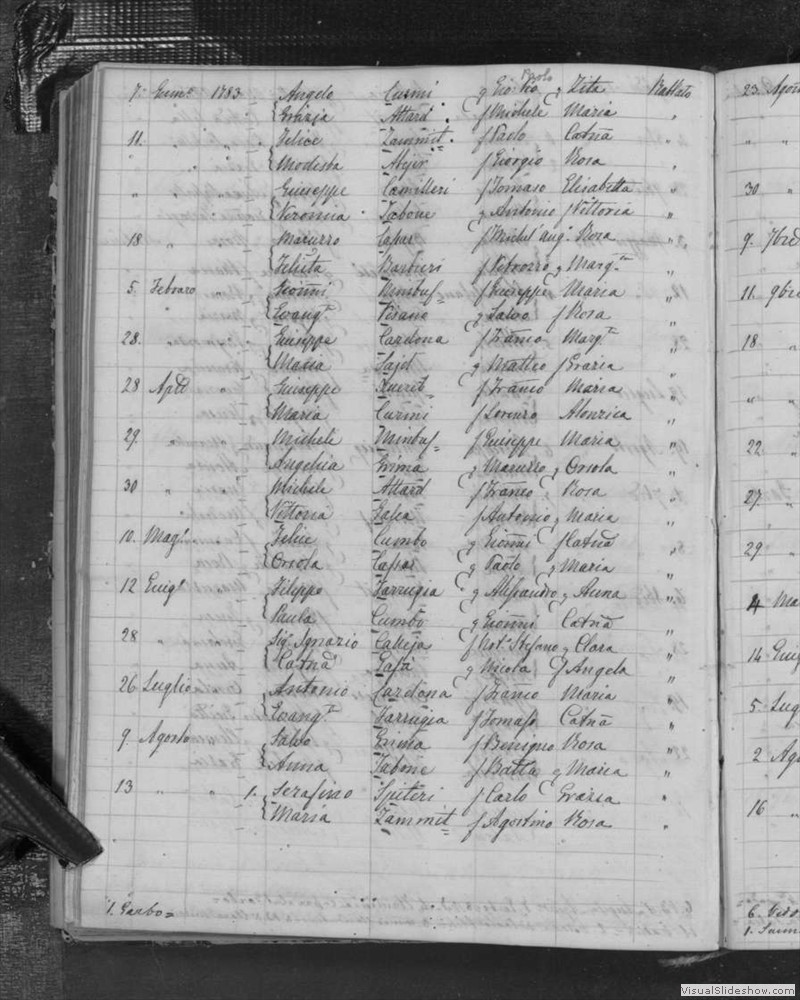 Paolo
7. Genn.o 1783 Angelo Curmi q Gio: Zita Rabbato
Grazia Attard f Michele Maria "
11. " " Felice Zammit f Paolo Catn̄a "
" " " Modesta f Giorgio Rosa "
" " " Giuseppe Camilleri f Tomaso Elisabetta "
Veronia Tabone q Antonio f Vittoria "
18 " " Mazurro f Michel'ang.o Rosa "
Felicita Barbieri q Marg.ta "
5. Febraro " Gionn̄i f Giuseppe Maria "
Evang.ta Pisano q Salvo f Rosa "
28. " " Giuseppe Cardona f Franco Marg.ta "
Maria Sajd q Matteo f Grazia "
28 April Giuseppe Xuereb f Franco Maria "
Maria Curmi f Lorenzo "
29 " " Michele f Giuseppe Maria "
Angelica Grima q Mazurro q Orsola "
30 " " Michele Attard f Franco Rosa "
Vittoria Galea f Antonio q Maria "
10. Mag.o Felice Cumbo q Gionn̄i f Catn̄a "
Orsola q Paolo q Maria "
12 Giug.o Filippo Farrugia q Alessandro q Anna "
Paula Cumbo q Gionn̄i Catn̄a "
28 " Sig. Ignazio Calleja f Not.o Stefano q Clara "
Catn̄a q Nicola f Angela "
26 Luglio Antonio Cardona f Franco Maria "
Evang.ta Farrugia f Tomaso Catn̄a "
9. Agosto Salvo f Benigno Rosa "
Anna Tabone f Batta q Maria "
13 " " 1. Serafino Spiteri f Carlo Grazia "
Maria Zammit f Agostino Rosa "
1. Garbo=
23. Agos
" "
30 "
9. 7bre
11. 9bre
18 "
" "
22 "
27 "
29 "
4 Ma
14 Giug
5 Lug
2 Ag
16 "
VisualSlideshow.com